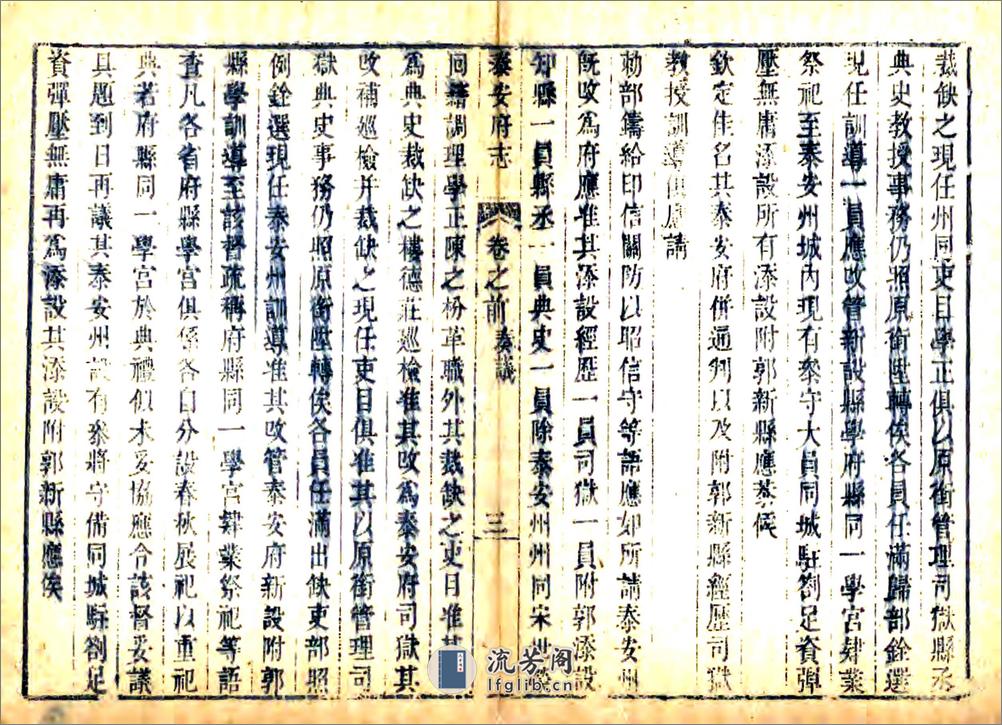 裁缺之現任州同吏目學正俱以原銜管理司獄縣丞
典史教授事務仍照原銜陞轉俟各員任滿歸部銓選
現任訓導一員應改管新設縣學府縣同一學宮肄業
祭祀至泰安州城內現有叅守大員同城駐劄足資彈
壓無庸添設所有添設附郭新縣應恭候
欽定佳名其泰安府併通判以及附郭新縣經歷司獄
教授訓導俱應請
勅部鑄給印信關防以昭信守等語應如所請泰安州
既改為府應准其添設經歷一員司獄一員附郭添設
知縣一員縣丞一員典史一員除泰安州州同宋
泰安府志 卷之前 奏議 三
同 調理學正陳之枌革職外其裁缺之吏目准其
為典史裁缺之樓德莊巡檢准其改為泰安府司獄其
改補巡檢并裁缺之現任吏目俱准其以原銜管理司
獄典史事務仍照原銜陞轉俟各員任滿出缺吏部照
例銓選現任泰安州訓導准其改管泰安府新設附郭
縣學訓導至該督疏稱府縣同一學宮肄業祭祀等語
查凡各省府縣學宮俱係各自分設春秋展祀以重祀
典若府縣同一學宮於典禮似未妥協應令該督妥議
具題到日再議其泰安州設有叅將守備同城駐劄足
資彈壓無庸再為添設其添設附郭新縣應俟
流芳阁
lfglib.cn